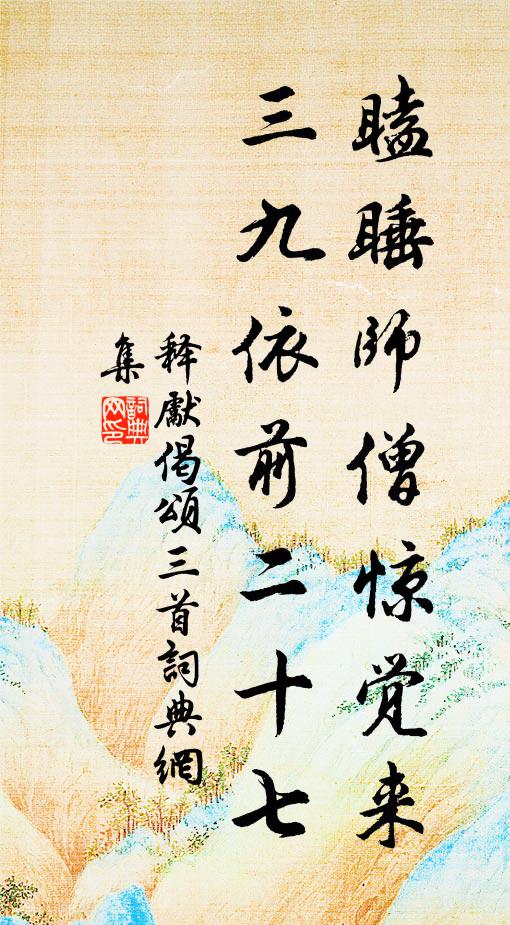 瞌睡师僧惊觉来
三九依前二十七
释獻偈頌三首詞典網
集
詞典網印